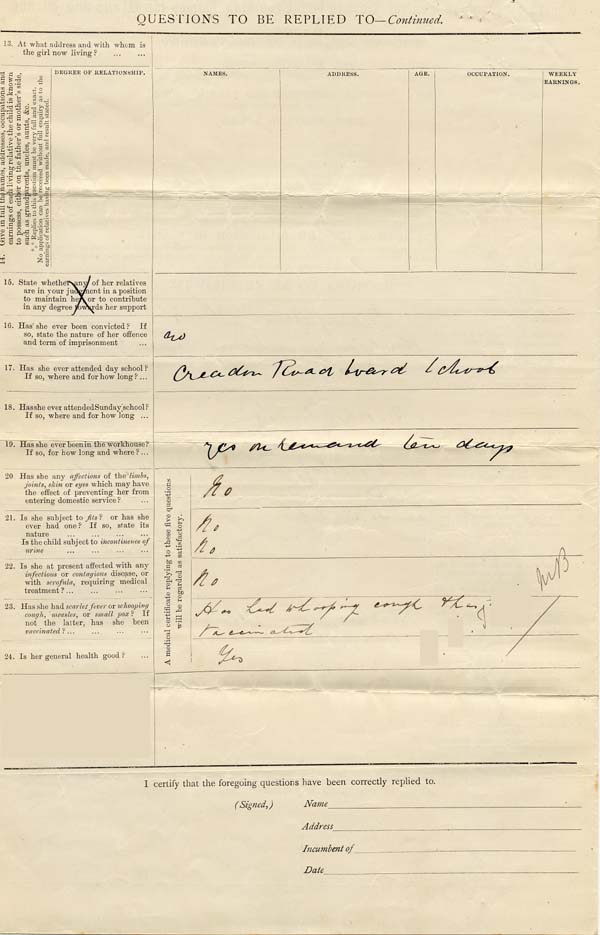 QUESTIONS TO BE REPLIED TO—Continued.
13. At what address and with whom is
the girl now living? ... ...
14. Give in full the names, addresses, occupations and
earnings of each living relative the child is known
to possess, either on the father's or mother's side,
such as grandparents, uncles, aunts, &c.
*** Replies to this question must be very full and exact.
No application can be received without full enquiry as to the
earnings of relatives having been made, and result stated.
DEGREE OF RELATIONSHIP.
NAMES.
ADDRESS.
AGE.
OCCUPATION.
WEEKLY
EARNINGS.
15. State whether any of her relatives
are in your judgment in a position
to maintain her or to contribute
in any degree towards her support
16. Has she ever been convicted? If
so, state the nature of her offence
and term of imprisonment ...
no
17. Has she ever attended day school?
If so, where and for how long? ...
Creadon Road board School
18. Has she ever attended Sunday school?
If so, where and for how long ...
19. Has she ever been in the workhouse?
If so, for how long and where? ...
yes on remand ten days
A medical certificate replying to these five questions
will be regarded as satisfactory.
20 Has she any affections of the limbs,
joints, skin or eyes which may have
the effect of preventing her from
entering domestic service? ...
No
21. Is she subject to fits? or has she
ever had one? If so, state its
nature ... ... ... ...
No
Is the child subject to incontinence of
urine ... ... ... ...
No
22. Is she at present affected with any
infectious or contagious disease, or
with scrofula, requiring medical
treatment? ... ... ... ...
No
MB
23. Has she had scarlet fever or whooping
cough, measles, or small pox? If
not the latter, has she been
vaccinated? ... ... ... ...
Has had whooping cough
vaccinated
24. Is her general health good? ...
Yes
I certify that the foregoing questions have been correctly replied to.
(Signed,) Name
Address
Incumbent of
Date